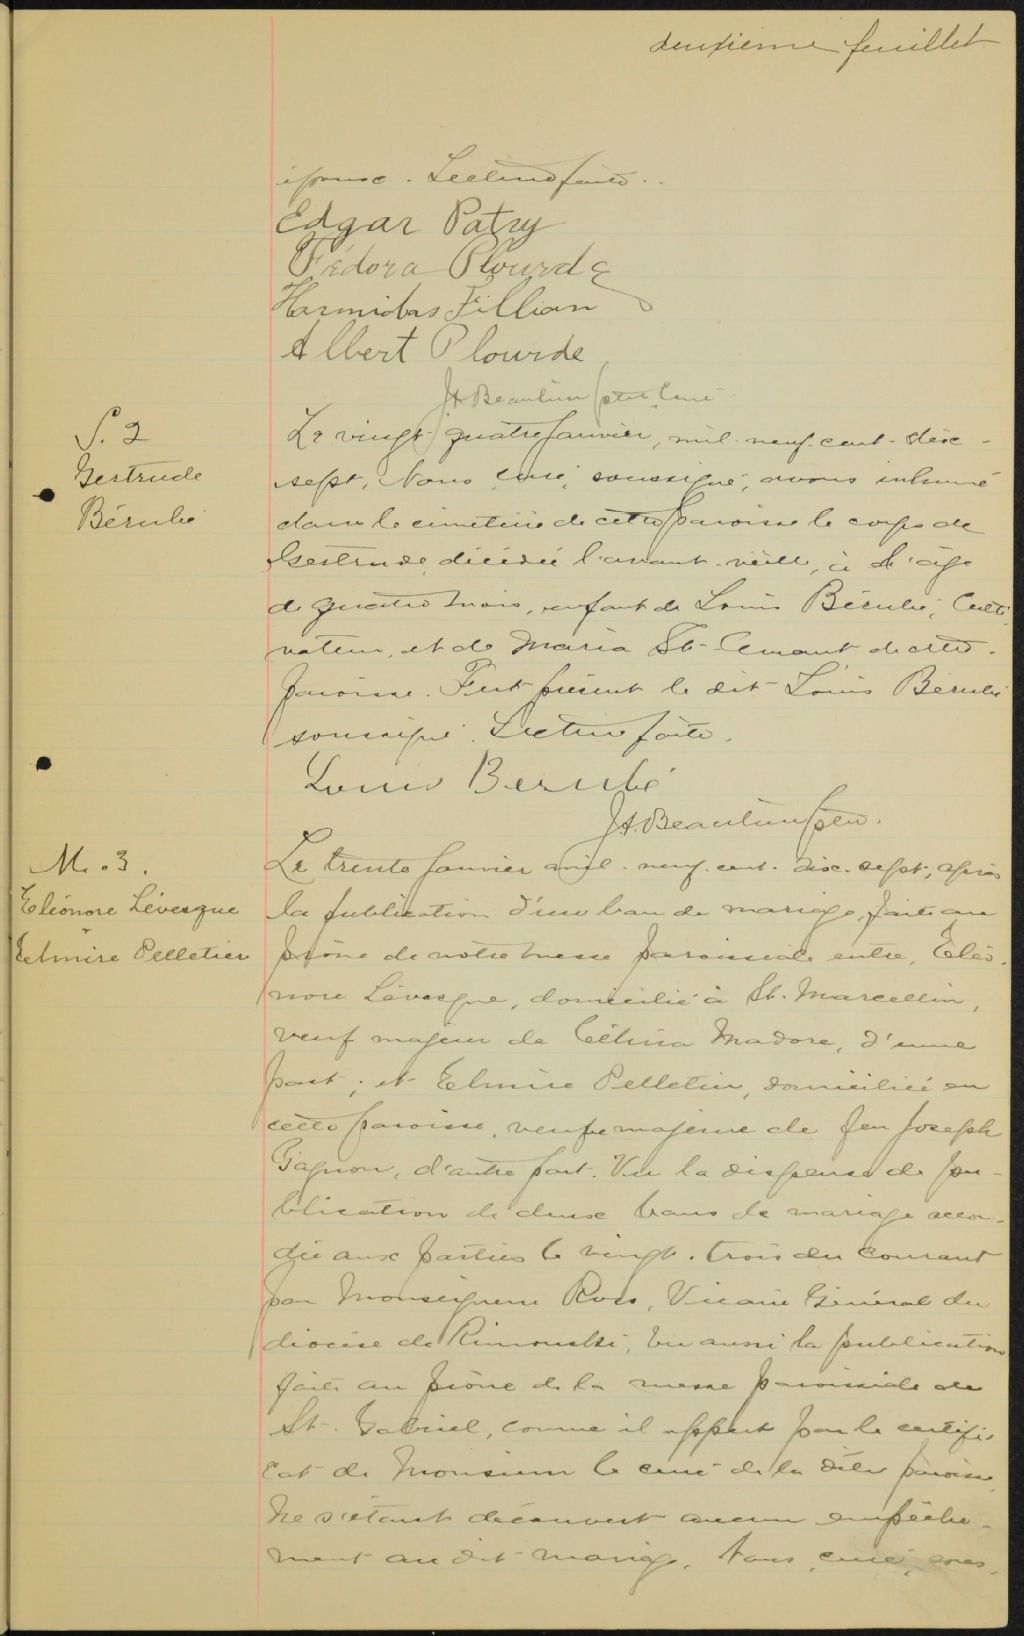 deuxième feuillet
épouse. Lecture faite.
Edgar Patry
Fédora Plourde
Harmidas Fillion
Albert Plourde
J A Beaulieu ptre curé
S. 2
Gertrude
Bérubé
Le vingt quatre janvier, mil neuf cent dix-
sept, Nous, curé, soussigné, avons inhumé
dans le cimetière de cette paroisse le corps de
Gertrude, décédée l'avant-veille, à l'âge
de quatre mois, enfant de Louis Bérubé, Culti
vateur, et de Maria St-Amant de cette
paroisse. Fut présent le dit Louis Bérubé
soussigné. Lecture faite.
Louis Berubé
J A. Beaulieu ptre.
M. 3.
Eléonore Lévesque
&
Elmire Pelletier
Le trente janvier mil neuf cent dix-sept, après
la publication d'un ban de mariage, faite au
prône de notre messe paroissiale entre, Eléo-
nore Lévesque, domicilié à St. Marcellin,
veuf majeur de Célina Madore, d'une
part; et Elmire Pelletier, domiciliée en
cette paroisse, veuve majeure de feu Joseph
Gagnon, d'autre part. Vu la dispense de pu-
blication de deux bans de mariage accor-
dée aux parties le vingt-trois du courant
par Monseigneur Ross, Vicaire Général du
diocèse de Rimouski, vu aussi la publication
faite au prône de la messe paroissiale de
St. Gabriel, comme il appert par le certifi
cat de Monsieur le curé de la dite paroisse,
Ne s'étant découvert aucun empêche-
ment au dit mariage, Nous, curé, sous-